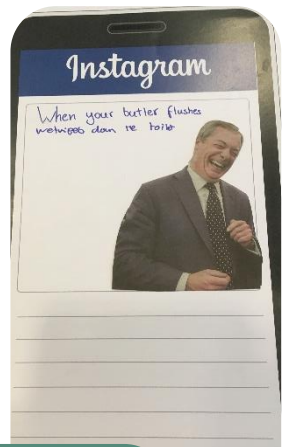 Instagram
When your butler flushes
wetwipes down re toile